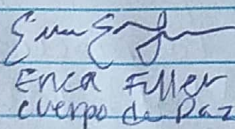 Erica Fuller
cuerpo de Paz